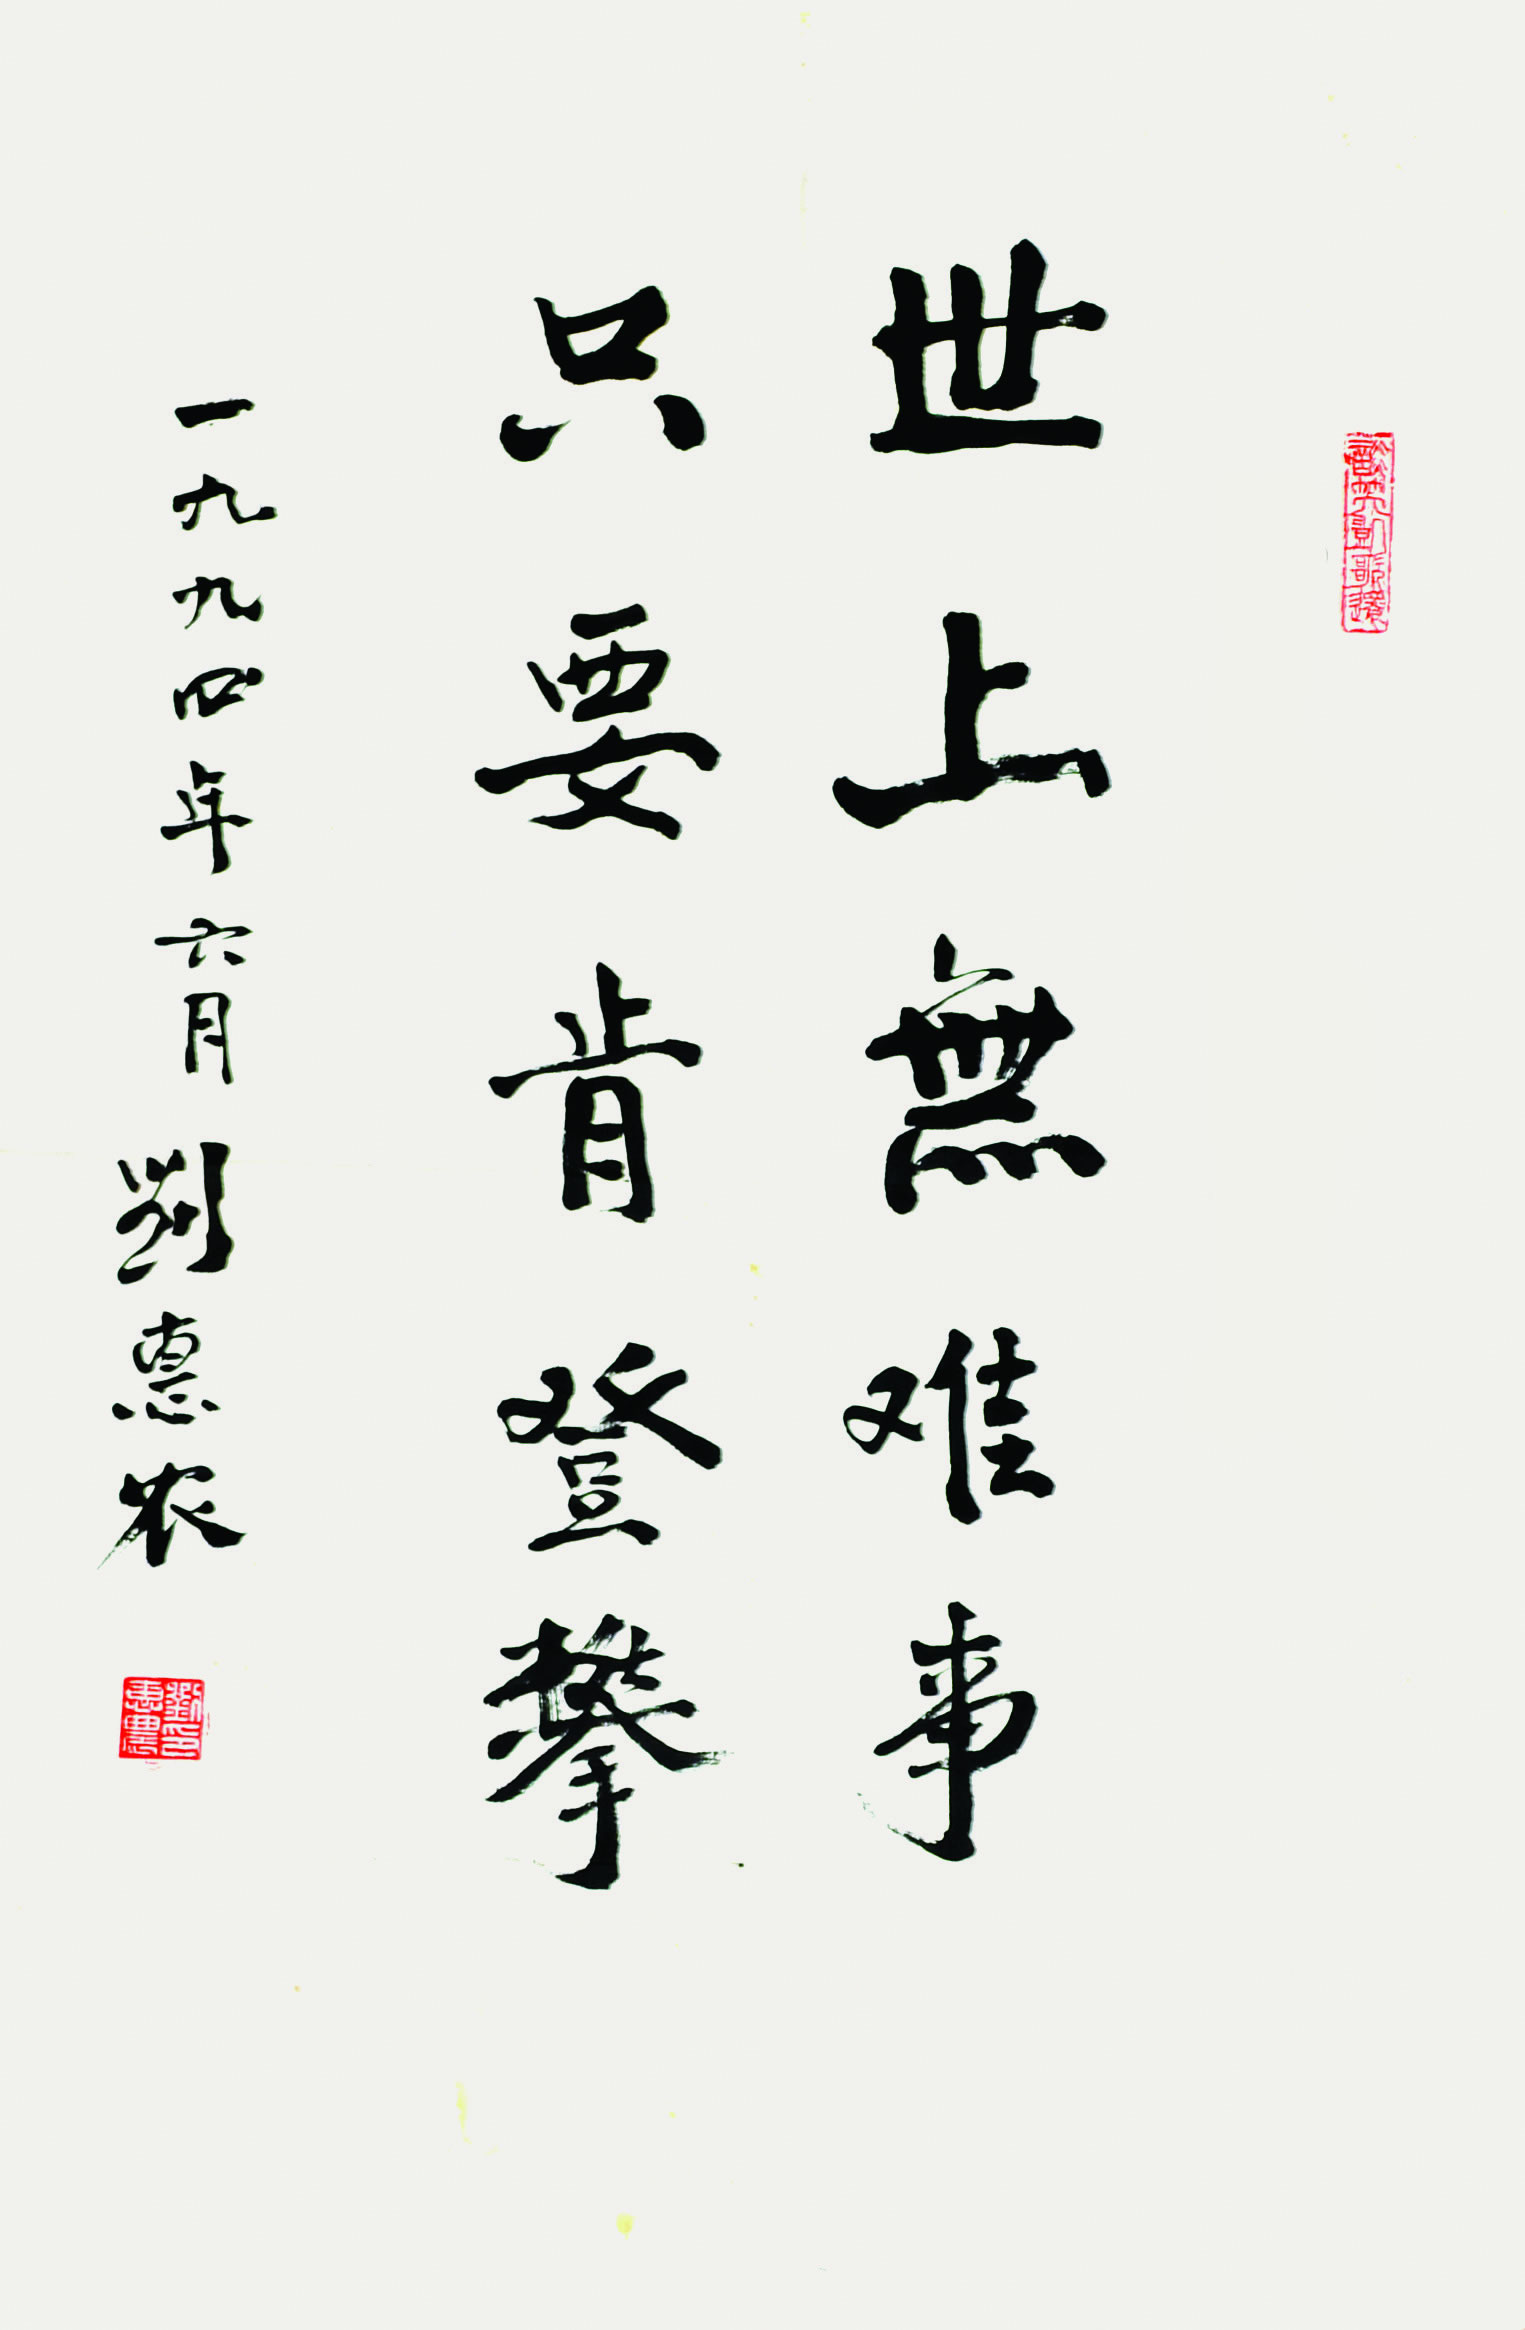 世上無难事
只要肯登攀
一九九四年六月 刘惠农
劉印惠農